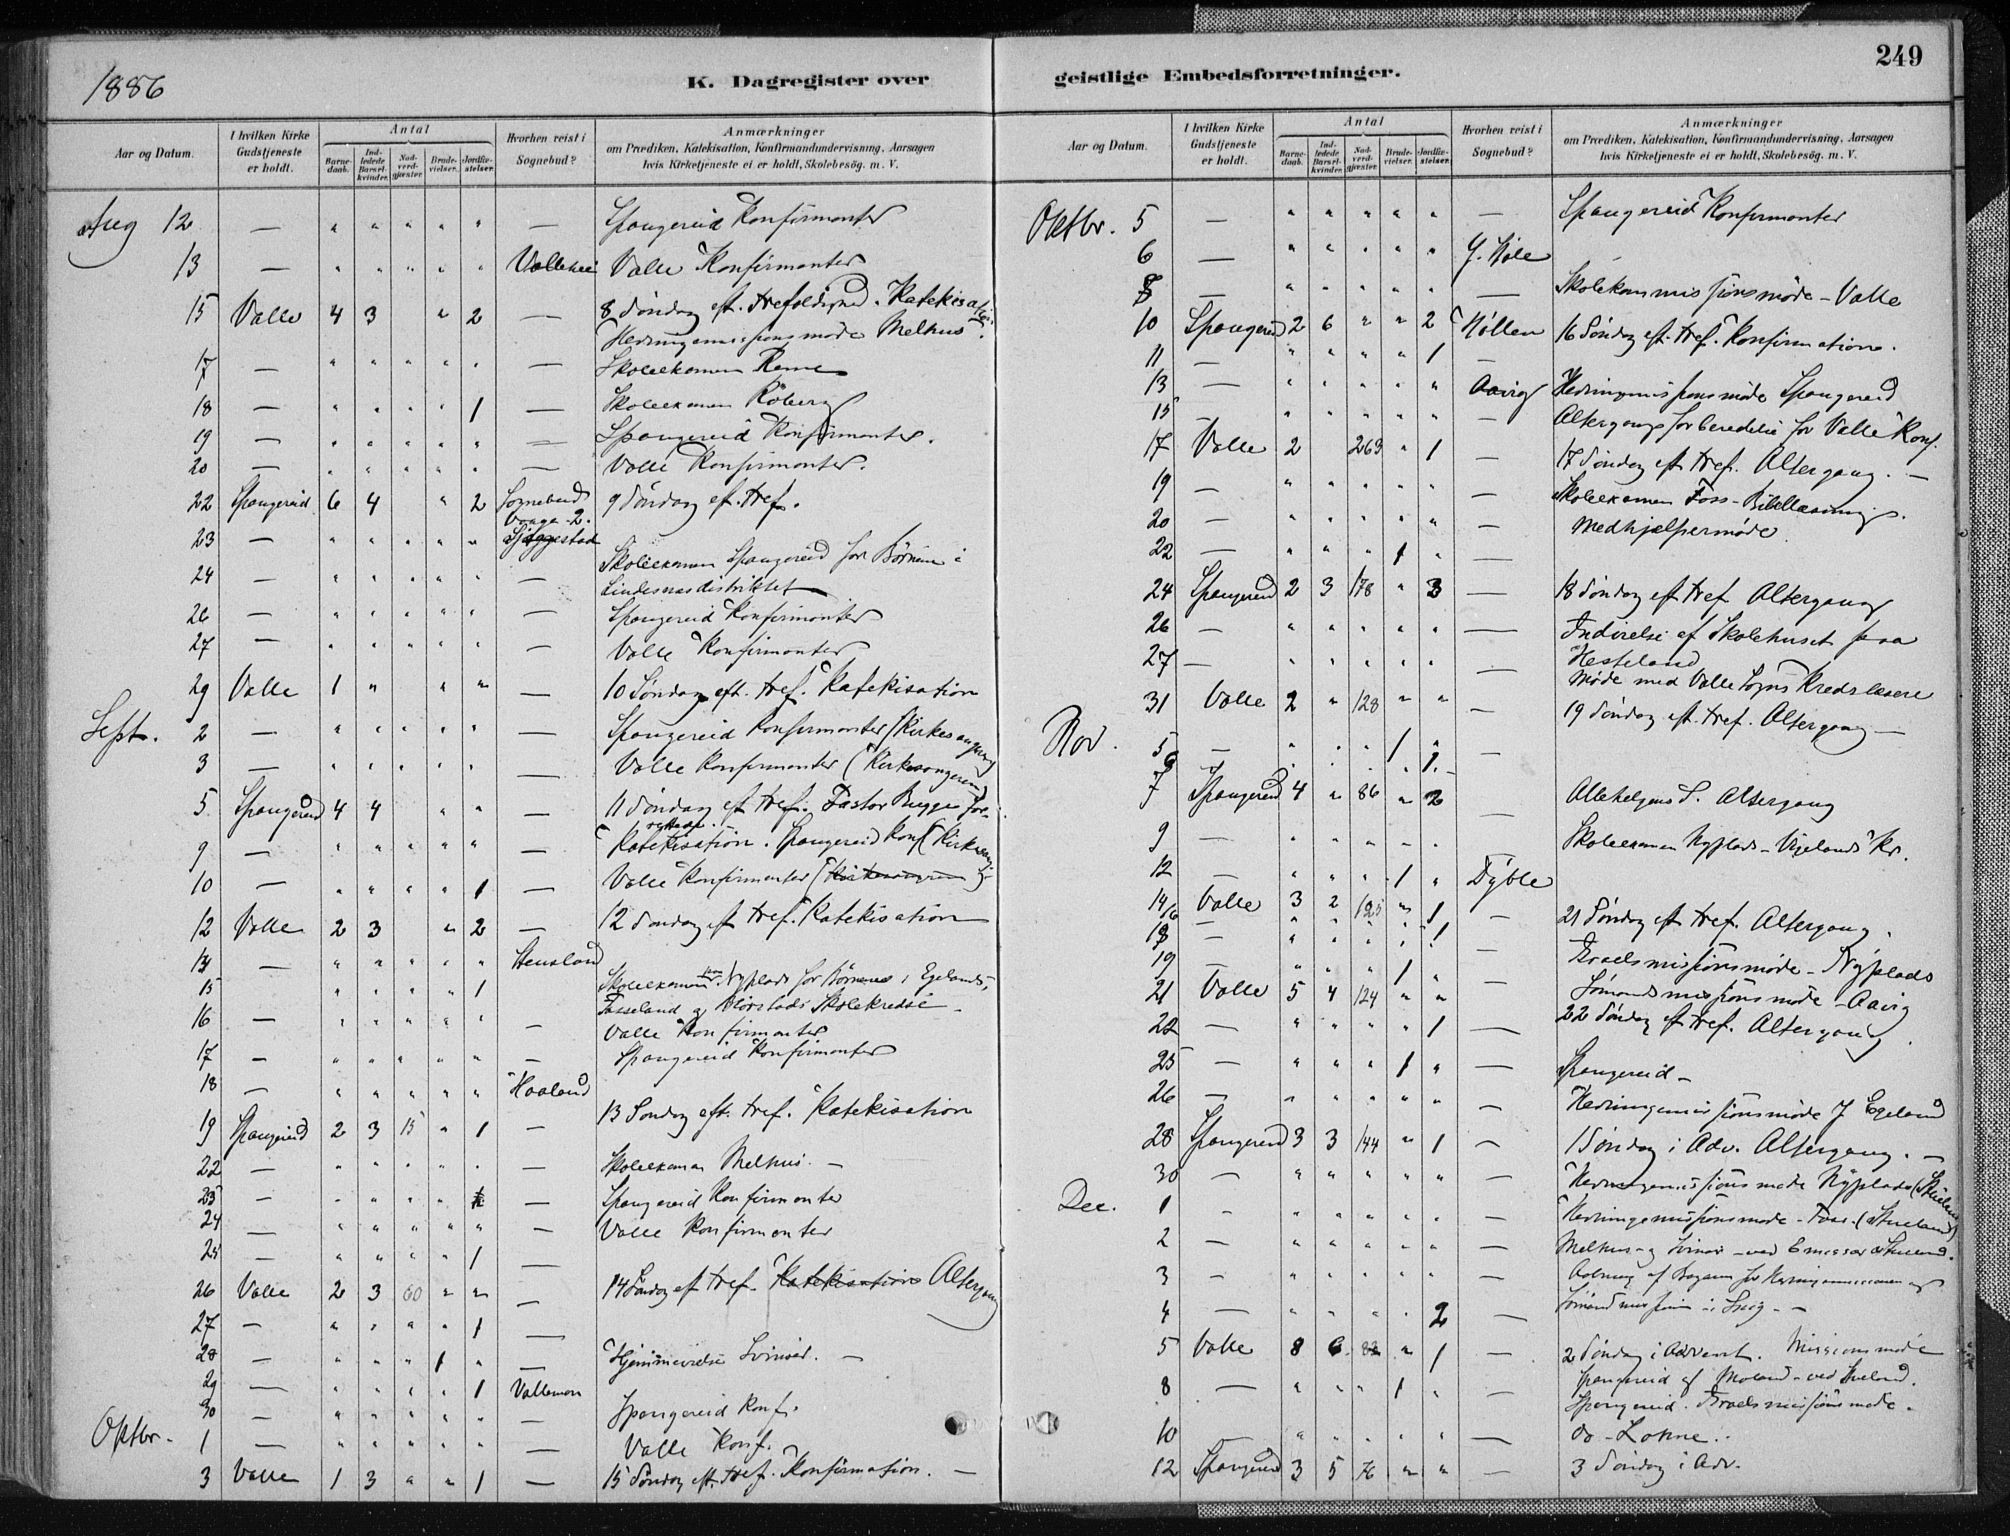 1886
K. Dagregister over
Aar og Datum.
I hvilken Kirke Gudstjeneste er holdt.
Antal
Barnedaab.
Indledede Barselkvinder.
Nadverdgjæster.
Brudevielser.
Jordfæstelser.
Hvorhen reist i Sognebud?
Anmærkninger
om Prædiken, Katekisation, Konfirmandundervisning, Aarsagen
hvis Kirketjeneste ei er holdt, Skolebesög. m. V.
Aug 12 — " " " " " — Spangereid Konfirmanter
13 — " " " " " Vallehei Valle Konfirmanter
15 Valle 4 3 " 2 — 8 Söndag eft. trefoldighed. Katekisation
Hedningemissionsmøde Melhus.
17 — " " " " " — Skoleexamen Reme
18 — " " " " 1 — Skoleexamen Röberg
19 — " " " " " — Spangereid Konfirmanter.
20 — " " " " " — Valle Konfirmanter.
22 Spangereid 6 4 " 2 Sognebud Vaage 2. 9 Söndag eft. tref.
23 — " " " " "
24 — " " " " " — Skoleexamen Spangereid for Börnene i
Lindesnæsdistriktet
26 — " " " " " — Spangereid Konfirmanter
27 — " " " " " — Valle Konfirmanter
29 Valle 1 " " " — 10 Söndag eft. tref. Katekisation
Sept. 2 — " " " " " — Spangereid Konfirmanter (Kirkesangeren)
3 — " " " " " — Valle Konfirmanter (Kirkesangeren)
5 Spangereid 4 4 " " 11 Söndag eft tref. Pastor Bugge forrettede.
9 — " " " " " — Katekisation. Spangereid Konf (Kirkesang
10 — " " " " 1 — Valle Konfirmanter (Kirkesangeren)
12 Valle 2 3 " 2 — 12 Söndag eft tref. Katekisation
14 — " " " " " Stensland
15 " " " " 1 Skoleexamen Nyplads for Börnene i Egelands,
16 — " " " " " — Fasseland og Skolekredse
Valle Konfirmanter
17 — " " " " " — Spangereid Konfirmanter
18 — " " " " " Haaland
19 Spangereid 2 3 15 " 1 — 13 Söndag eft. tref. Katekisation
22 — " " " " " — Skoleexamen Melhus. —
23 — " " " " — Spangereid Konfirmanter
24 — " " " " " — Valle Konfirmanter
25 " " " " 1 —
26 Valle 2 3 60 " " — 14 Söndag eft tref. Katekisation Altergang
27 — " " " " 1 —
28 — " " " 1 " — Hjemmevielse Svinör. —
29 — " " " " 1 Vallemoen
30 — " " " " " Spangereid Konf.
Oktbr. 1 — " " " " " — Valle Konf.
3 Valle 1 3 " " 1 — 15 Söndag eft. tref. Konfirmation. —
geistlige Embedsforretninger.
249
Aar og Datum.
I hvilken Kirke Gudstjeneste er holdt.
Antal
Barnedaab.
Indledede Barselkvinder.
Nadverdgjæster.
Brudevielser.
Jordfæstelser.
Hvorhen reist i Sognebud?
Anmærkninger
om Prædiken, Katekisation, Konfirmandundervisning, Aarsagen
hvis Kirketjeneste ei er holdt, Skolebesög. m. V.
Oktbr. 5 — " " " " " — Spangereid Konfirmanter
6 — " " " " "
8 — " " " " " — Skolekommissionsmöde - Valle
10 Spangereid 2 6 " " 2 Höllen 16 Söndag eft. tref. Konfirmation.
11 — " " " " 1 —
13 — " " " " " Aavig Hedningemissionsmöde Spangereid
15 " " " " " — Altergangsforberedelse for Valle Konf.
17 Valle 2 263 " 1 — 17 Söndag eft tref. Altergang. —
19 — " " " " " — Skoleexamen Foss - Bibellæsning.
20 — " " " " " — Medhjælpermöde.
22 — " " " 1 " —
24 Spangereid 2 3 178 " 3 — 18 Söndag eft tref Altergang
26 — " " " " " — Indvielse af Skolehuset paa
Hesteland
27 — " " " " " — Möde med Valle Sogns Kredslæsere
31 Valle 2 " 128 " " — 19 Söndag eft. tref. Altergang —
Nov. 5 — " " " 1 " —
6 " " " " 1. —
7 Spangereid 4 " 86 " 2 — Allehelgens S. Altergang
9 — " " " " " Skoleexamen Nyplads - Vigelands Kr.
12 — " " " 1 " Dyble
14 Valle 3 2 125 " 1 — 21 Söndag eft tref. Altergang.
16 " " " " 1
18 — " " " " — Israelsmissionsmöde - Nyplads
19 " " " 1 " — Sömandsmissionsmöde - Aavig
21 Valle 5 4 124 " " 22 Söndag eft tref. Altergang.
22 — " " " " 1 —
25 — " " " 1 " — Spangereid -
26 — " " " " " — Hedningemissionsmöde Egeland
28 Spangereid 3 3 144 " 1 — 1 Söndag i Adv. Altergang. —
30 — " " " " " — Hedningemissionsmöde Nyplads
Dec. 1 " " " " " — Hedningemissionsmöde - Foss.
2 — " " " " " — Melhus - og Svinör - ved Emissær
3 — " " " " " — Aabning af Bazaren for Hedningemissionen og
4 — " " " " 2 — Sömandsmissionen i Snig - —
5 Valle 8 6 82 " 1 — 2 Söndag i Advent. Missionsmöde
8 — " " " 1 " — Spangereid
Spangereid. Israelsmissionsmöde.
10 " " " " " — do -
12 Spangereid 3 5 76 " " — 3 Söndag i Adv.